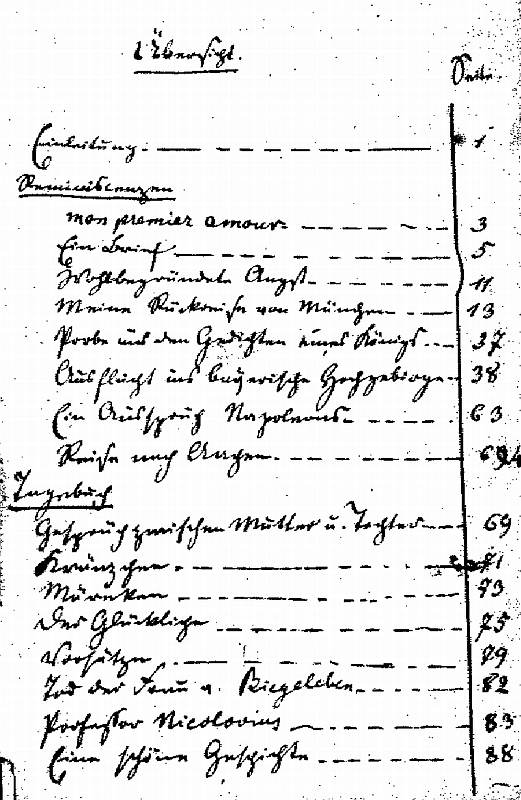 Übersicht.
Seite.
Einleitung. 1
Reminiscenzen
mon premier amour. 3
Ein Brief 5
Wohlbegründete Angst 11
Meine Rückreise von München 13
Probe aus den Gedichten eines Königs 37
Ausflucht ins bayerische Hochgebirge 38
Ein Ausspruch Napoleons 63
Reise nach Aachen
Tagebuch
Gespräch zwischen Mutter u. Tochter 69
Kränzchen 71
Märchen 73
Der Glückliche 75
Vorsätze 79
Tod der Frau v. Biegeleben 82
Professor Nicolovius 83
Eine schöne Geschichte 88